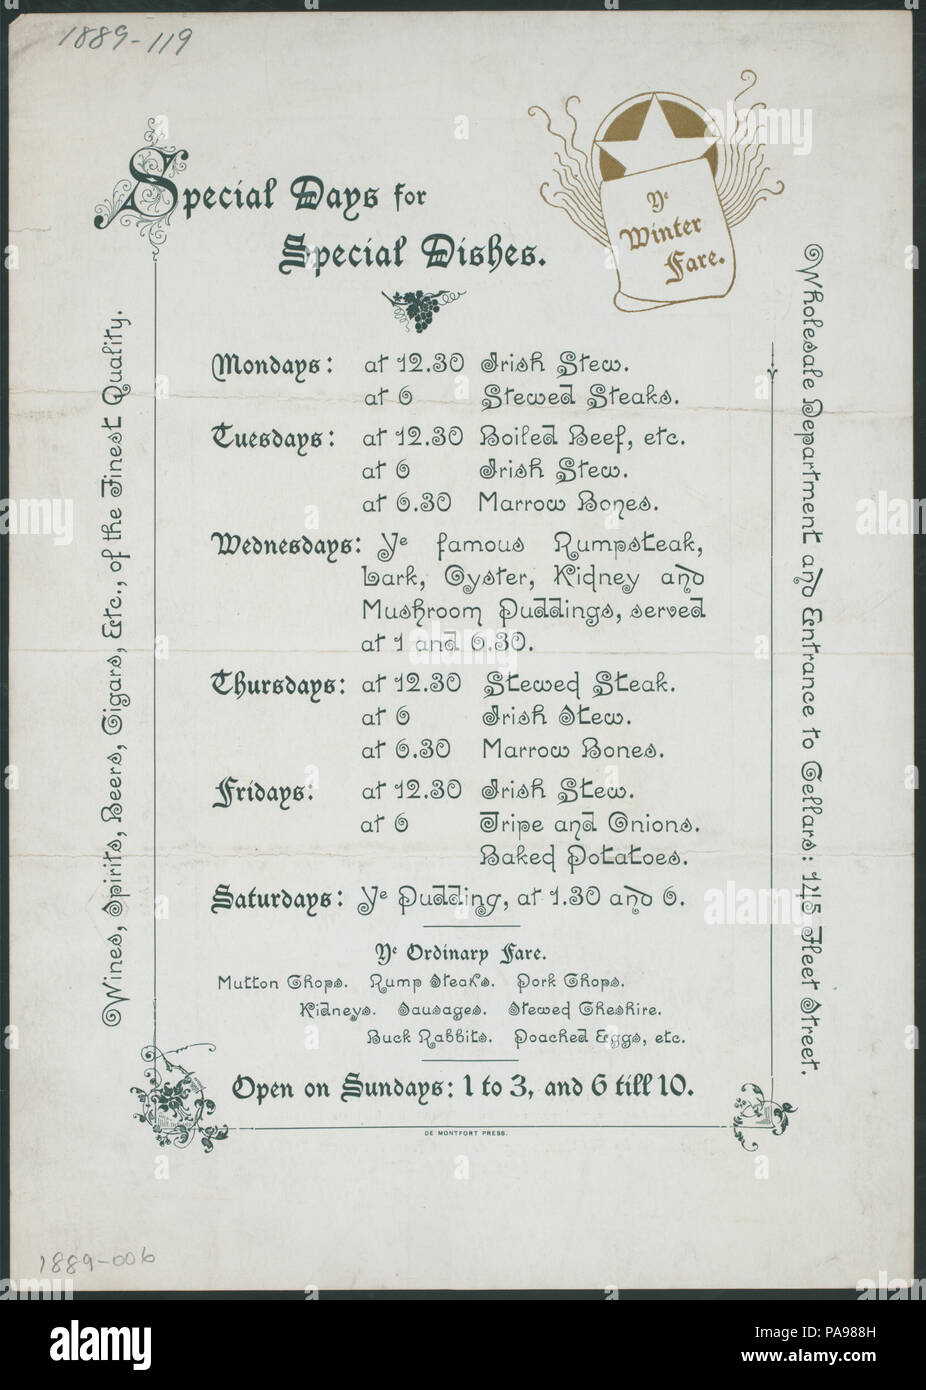 1889-119
Special Days for
Special Dishes.
Ye
Winter
Fare.
Mondays: at 12.30 Irish Stew.
at 6 Stewed Steaks.
Tuesdays: at 12.30 Boiled Beef, etc.
at 6 Irish Stew.
at 6.30 Marrow Bones.
Wednesdays: Ye famous Rumpsteak,
Lark, Oyster, Kidney and
Mushroom Puddings, served
at 1 and 6.30.
Thursdays: at 12.30 Stewed Steak.
at 6 Irish Stew.
at 6.30 Marrow Bones.
Fridays: at 12.30 Irish Stew.
at 6 Tripe and Onions.
Baked Potatoes.
Saturdays: Ye Pudding, at 1.30 and 6.
Ye Ordinary Fare.
Mutton Chops. Rump Steaks. Pork Chops.
Kidneys. Sausages. Stewed Cheshire.
Buck Rabbits. Poached Eggs, etc.
Open on Sundays: 1 to 3, and 6 till 10.
DE MONTFORT PRESS.
Wines, Spirits, Beers, Cigars, Etc., of the Finest Quality.
Wholesale Department and Entrance to Cellars: 145 Fleet Street.
1889-006
alamy
a
Image ID: PA988H
www.alamy.com